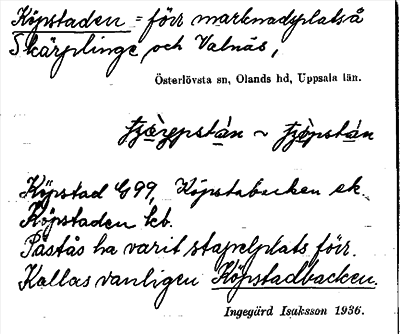 Köpstaden = förr marknadsplats å
Skärplinge och Valnäs,
Österlövsta sn, Olands hd, Uppsala län.
Köpstad G 99, Köpstabacken ek.
Köpstaden kb.
Påstås ha varit stapelplats förr.
Kallas vanligen Köpstadbacken.
Ingegärd Isaksson 1936.